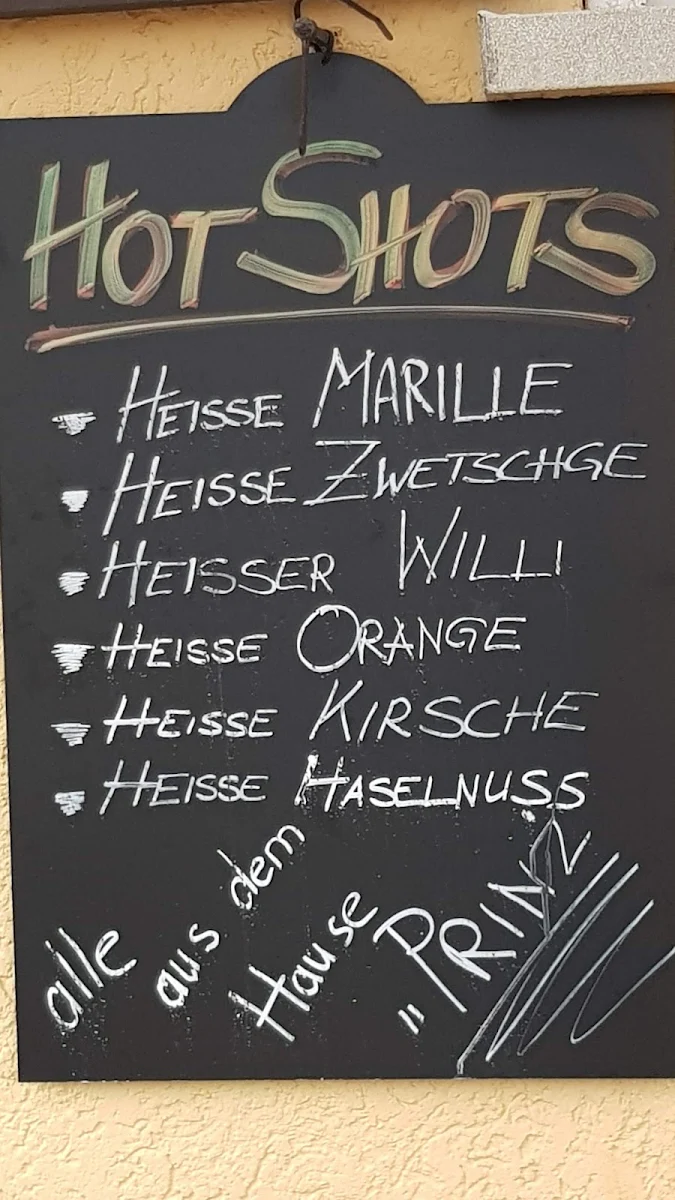 HOT SHOTS
HEISSE MARILLE
HEISSE ZWETSCHGE
HEISSER WILLI
HEISSE ORANGE
HEISSE KIRSCHE
HEISSE HASELNUSS
alle aus dem Hause „PRINZ